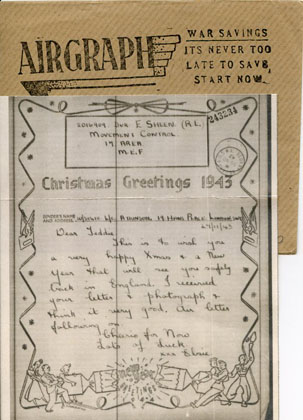 AIRGRAPH
WAR SAVINGS
ITS NEVER TOO
LATE TO SAVE
START NOW
243234
E
MOVEMENT CONTROL
17 AREA
M.E.F
Christmas Greetings 1943
SENDER'S NAME
AND ADDRESS
PLACE
Dear Teddie
This is to wish you
a very happy Xmas & a New
Year that will see you safely
back in England. I received
your letter & photograph &
think it very good, Air letter
following on.
Cheerio for Now
Lots of Luck
xxx